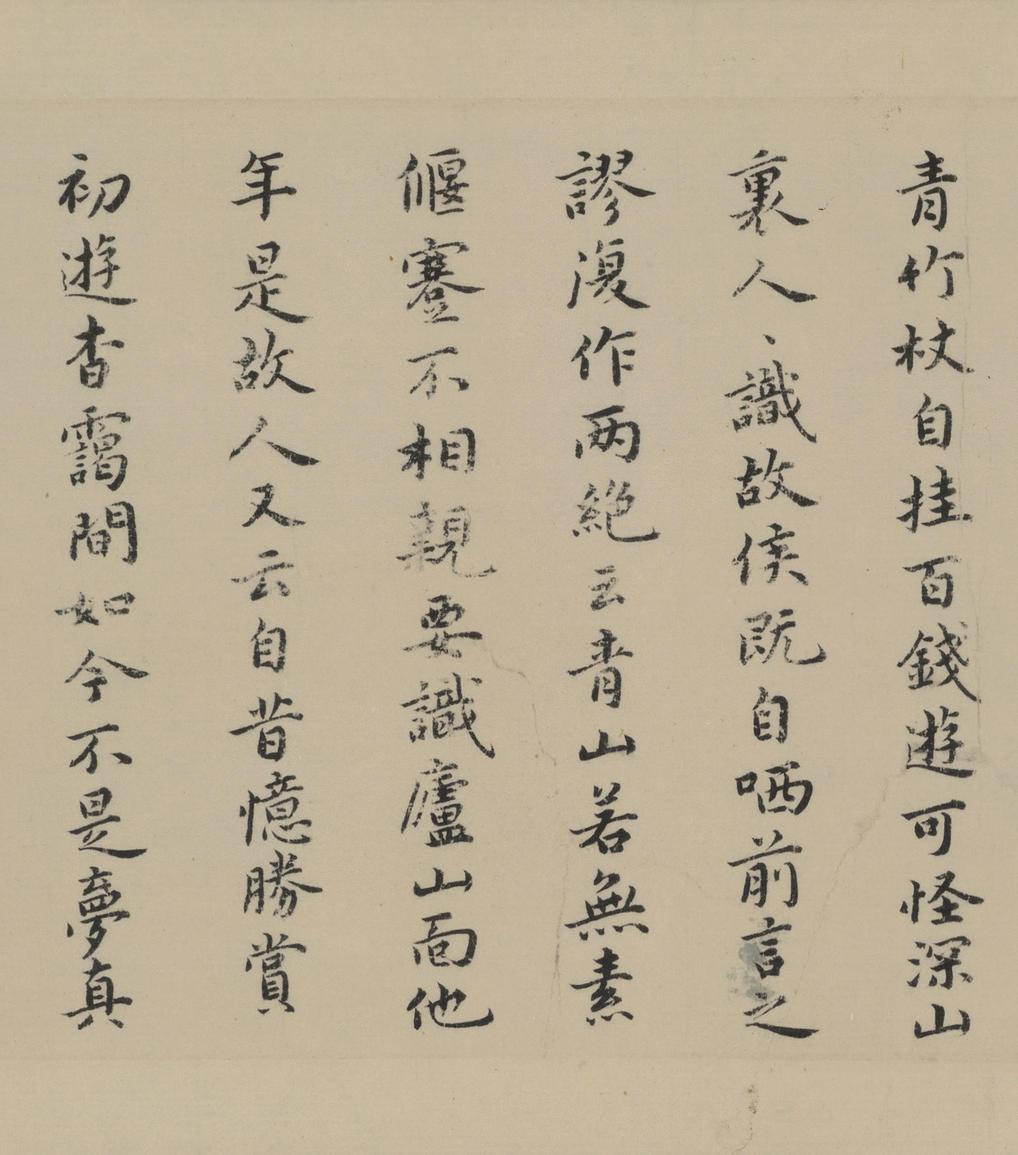 青竹杖自挂百錢遊可怪深山
裏人、識故侯既自哂前言之
謬復作两絶云青山若無素
偃蹇不相親要識廬山面他
年是故人又云自昔憶勝賞
初遊杳靄間如今不是夢真